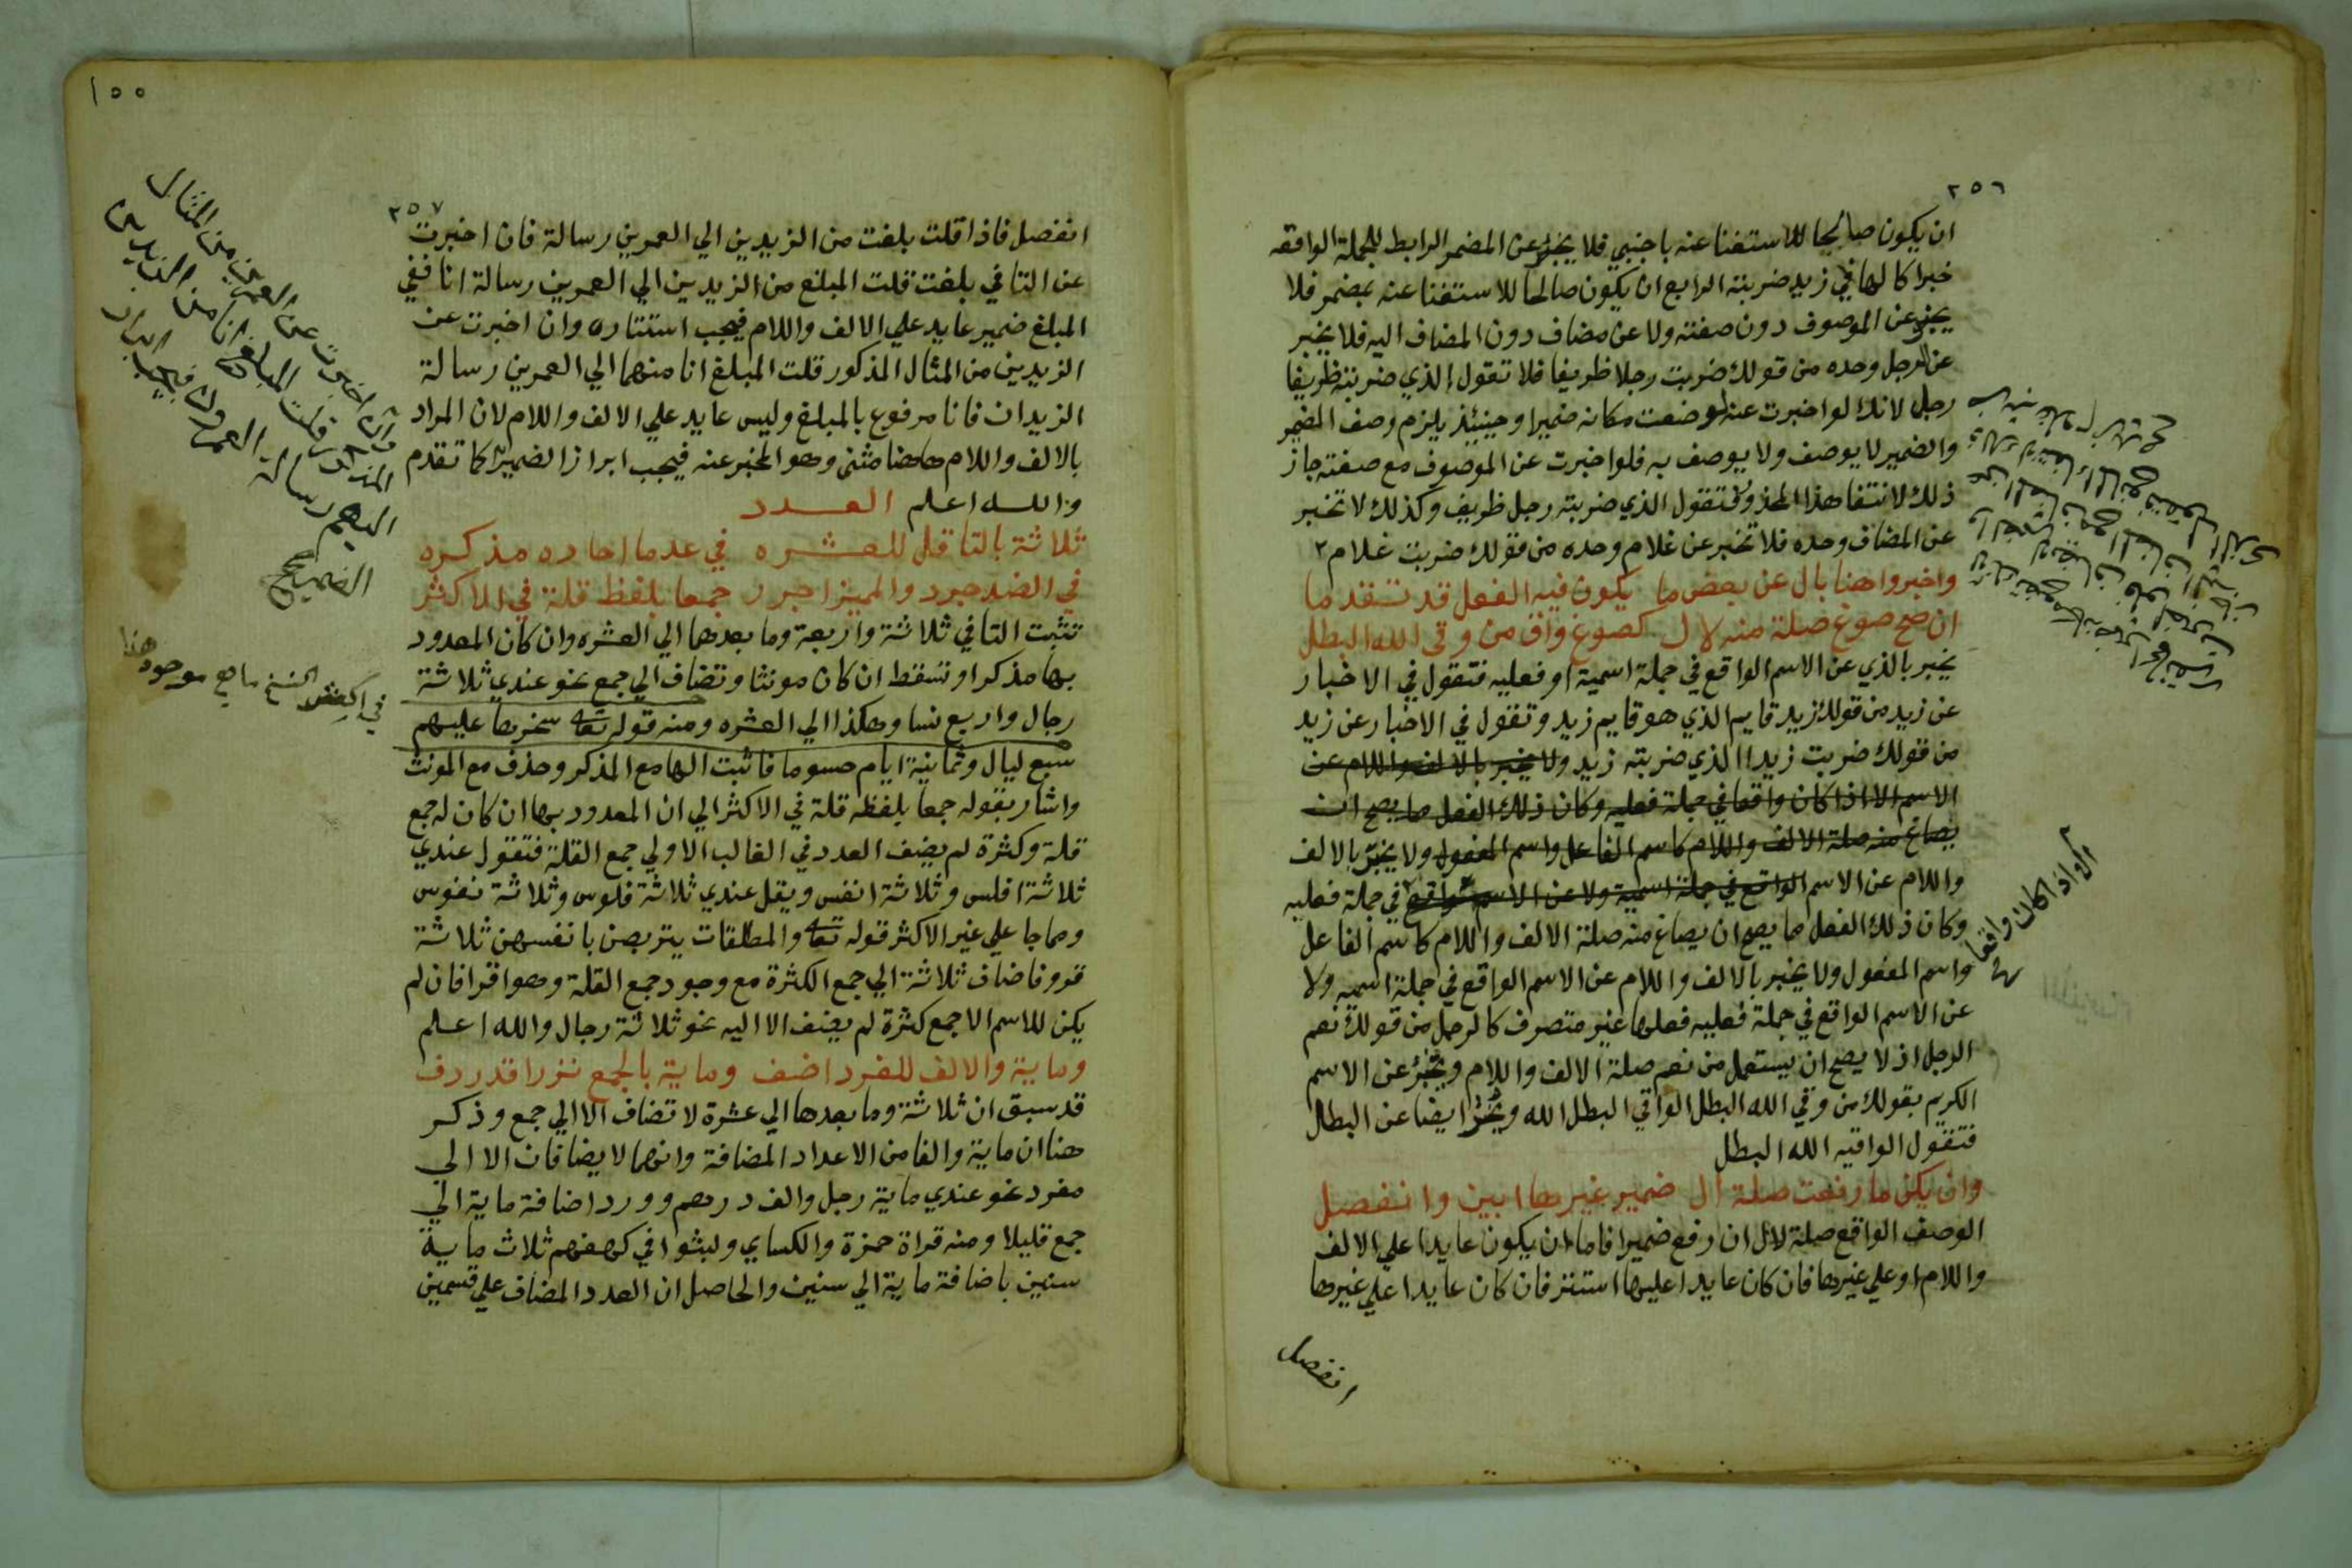 ٢٥٦
ان يكون صالحا للاستغنا عنه باجنبي فلا يخبر عن المضمر الرابط للجملة الواقعه
خبرا كالها في زيد ضربته الرابع ان يكون صالحا للاستغنا عنه بمضمر فلا
يخبر عن الموصوف دون صفته ولا عن مضاف دون المضاف اليه فلا يخبر
عن الرجل وحده من قولك ضربت رجلا ظريفا فلا تقول الذي ضربته ظريفا
رجل لانك لو اخبرت عنه لوضعت مكانه ضميرا وحينيذ يلزم وصف المضمر
والضمير لا يوصف ولا يوصف به فلو اخبرت عن الموصوف مع صفته جاز
ذلك لانتفا هذا المحذور فتقول الذي ضربته رجل ظريف وكذلك لا تخبر
عن المضاف وحده فلا تخبر عن غلام وحده من قولك ضربت غلام
واخبروا هنا بال عن بعض ما يكون فيه الفعل قد تقدما
ان صح صوغ صلة منه لال كصوغ واق من وقى الله البطل
يخبر بالذي عن الاسم الواقع في جملة اسمية او فعليه فتقول في الاخبار
عن زيد من قولك زيد قايم الذي هو قايم زيد وتقول في الاخبار عن زيد
من قولك ضربت زيدا الذي ضربته زيد ولا يخبر بالالف واللام عن
الاسم الا اذا كان واقعا في جملة فعليه وكان ذلك الفعل مما يصح ان
يصاغ منه صلة الالف واللام كاسم الفاعل واسم المفعول ولا يخبر بالالف
واللام عن الاسم الواقع في جملة اسمية ولا عن الاسم الواقع في جملة فعليه
وكان ذلك الفعل مما يصح ان يصاغ منه صلة الالف واللام كاسم الفاعل
واسم المفعول ولا يخبر بالالف واللام عن الاسم الواقع في جملة اسميه ولا
عن الاسم الواقع في جملة فعليه فعلها غير متصرف كالرجل من قولك نعم
الرجل اذ لا يصح ان يستعمل من نعم صلة الالف واللام ويخبر عن الاسم
الكريم بقولك من وقي الله البطل الواقي البطل الله ويخبر ايضا عن البطل
فتقول الواقيه الله البطل
وان يكن ما رفعت صلة ال ضمير غيرها ابين وانفصل
الوصف الواقع صلة لال ان رفع ضميرا فاما ان يكون عايدا علي الالف
واللام او علي غيرها فان كان عايدا عليها استتر فان كان عايدا علي غيرها
انفصل
الا اذا كان واقعا
١٥٥
٢٥٧
انفصل فاذا قلت بلغت من الزيدين الي العمرين رسالة فان اخبرت
عن التا في بلغت قلت المبلغ من الزيدين الي العمرين رسالة انا ففي
المبلغ ضمير عايد علي الالف واللام فيجب استتاره وان اخبرت عن
الزيدين من المثال المذكور قلت المبلغ انا منهما الي العمرين رسالة
الزيدان فانا مرفوع بالمبلغ وليس عايد علي الالف واللام لان المراد
بالالف واللام هاهنا مثنى وهو المخبر عنه فيجب ابراز الضمير كما تقدم
والله اعلم العدد
ثلاثة بالتا قل للعشره في عد ما احاده مذكره
في الضد جرد والمميز اجرر جمعا بلفظ قلة في الاكثر
تثبت التا في ثلاثة واربعة وما بعدهما الي العشره وان كان المعدود
بها مذكرا وتسقط ان كان مونثا وتضاف الي جمع نحو عندي ثلاثة
رجال واربع نسا وهكذا الي العشره ومنه قوله تعالى سخرها عليهم
سبع ليال وثمانية ايام حسوما فاثبت الها مع المذكر وحذف مع المونث
واشار بقوله جمعا بلفظ قلة في الاكثر الي ان المعدود بها ان كان له جمع
قلة وكثرة لم يضف العدد في الغالب الا الي جمع القلة فتقول عندي
ثلاثة افلس وثلاثة انفس ويقل عندي ثلاثة فلوس وثلاثة نفوس
ومما جا علي غير الاكثر قوله تعالى والمطلقات يتربصن بانفسهن ثلاثة
قروء فاضاف ثلاثة الي جمع الكثرة مع وجود جمع القلة وهو اقرا فان لم
يكن للاسم الا جمع كثرة لم يضف الا اليه نحو ثلاثة رجال والله اعلم
وماية والالف للفرد اضف وماية بالجمع نزرا قد ردف
قد سبق ان ثلاثة وما بعدها الي عشرة لا تضاف الا الي جمع وذكر
هنا ان ماية والفا من الاعداد المضافة وانهما لا يضافان الا الي
مفرد نحو عندي ماية رجل والف درهم وورد اضافة ماية الي
جمع قليلا ومنه قراة حمزة والكساي ولبثوا في كهفهم ثلاث ماية
سنين باضافة ماية الي سنين والحاصل ان العدد المضاف علي قسمين
وان اخبرت عن العمرين من المثال
المذكور قلت المبلغ انا من الزيدين
اليهم رسالة العمرون فيجب ابراز
الضمير صح
في بعض النسخ ما هو موجود هنا